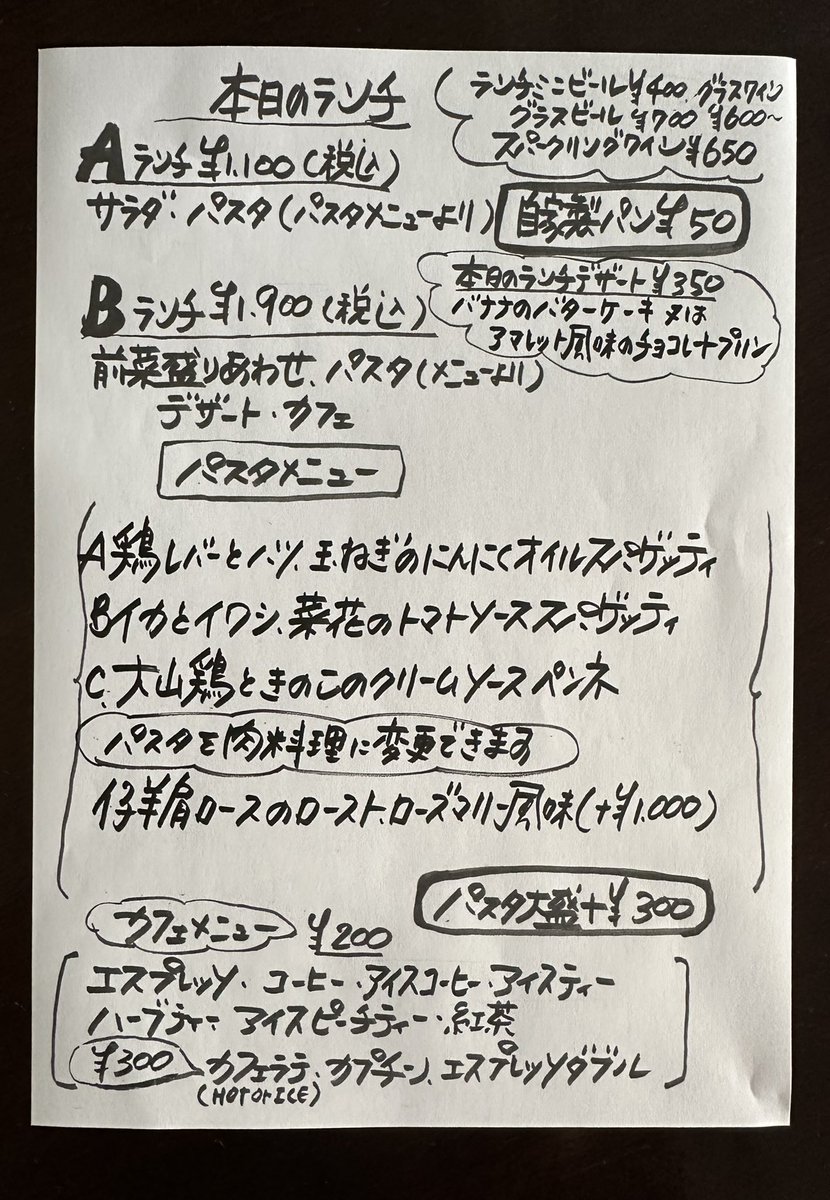 本日のランチ
ランチミニビール¥400 グラスワイン
グラスビール ¥700 ¥600〜
スパークリングワイン¥650
Aランチ¥1,100(税込)
サラダ・パスタ(パスタメニューより)
自家製パン¥50
本日のランチデザート¥350
バナナのバターケーキ又は
アマレット風味のチョコレートプリン
Bランチ¥1,900(税込)
前菜盛りあわせ、パスタ(メニューより)
デザート・カフェ
パスタメニュー
A鶏レバーとハツ、玉ねぎのにんにくオイルスパゲッティ
Bイカとイワシ、菜花のトマトソーススパゲッティ
C、大山鶏ときのこのクリームソースペンネ
パスタを肉料理に変更できます
仔羊肩ロースのロースト、ローズマリー風味(+¥1,000)
パスタ大盛+¥300
カフェメニュー ¥200
エスプレッソ・コーヒー・アイスコーヒー・アイスティー
ハーブティー アイスピーチティー・紅茶
¥300 カフェラテ、カプチーノ、エスプレッソダブル
(HOT or ICE)